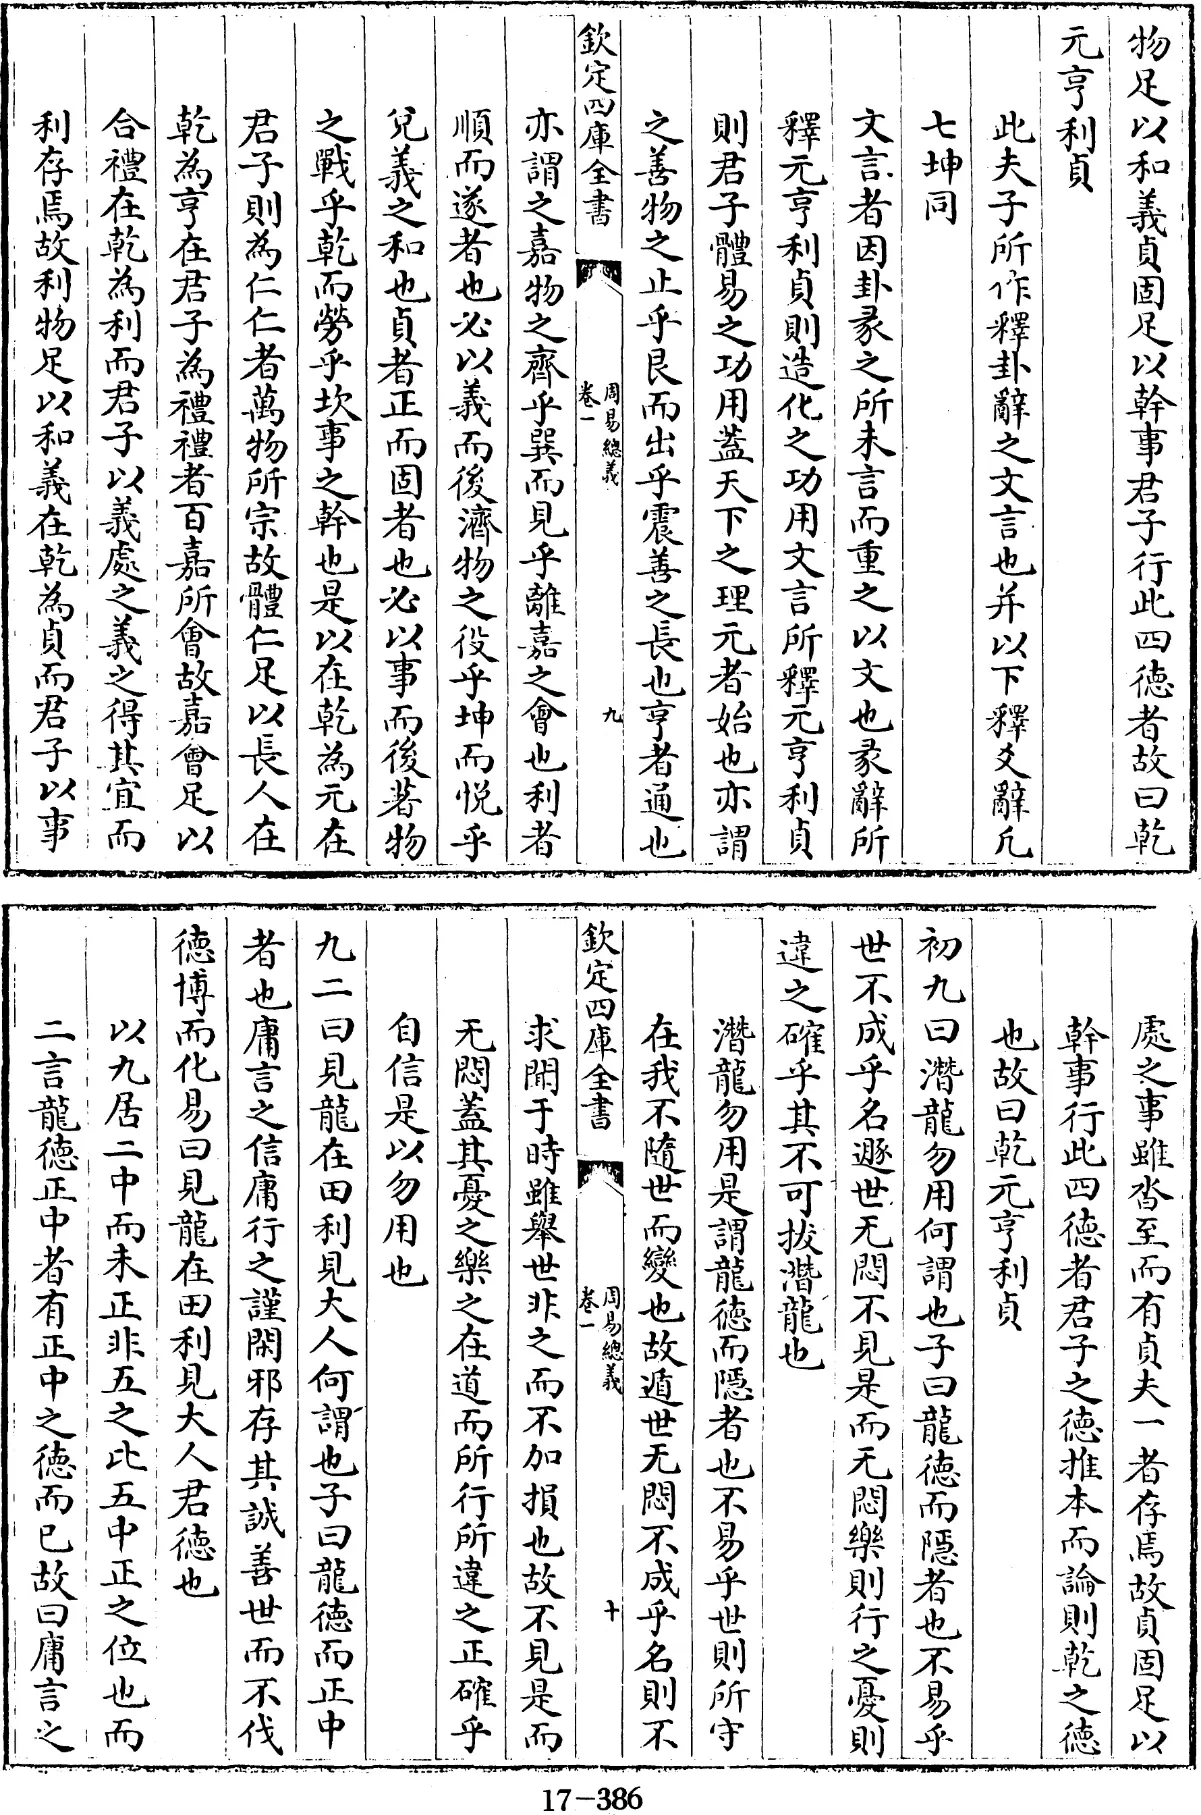 物足以和義貞固足以幹事君子行此四德者故曰乾
元亨利貞
此夫子所作釋卦辭之文言也并以下釋爻辭凡
七坤同
文言者因卦彖之所未言而重之以文也彖辭所
釋元亨利貞則造化之功用文言所釋元亨利貞
則君子體易之功用蓋天下之理元者始也亦謂
之善物之止乎艮而出乎震善之長也亨者通也
欽定四庫全書
周易總義
卷一
九
亦謂之嘉物之齊乎巽而見乎離嘉之會也利者
順而遂者也必以義而後濟物之役乎坤而悅乎
兌義之和也貞者正而固者也必以事而後著物
之戰乎乾而勞乎坎事之幹也是以在乾為元在
君子則為仁仁者萬物所宗故體仁足以長人在
乾為亨在君子為禮禮者百嘉所會故嘉會足以
合禮在乾為利而君子以義處之義之得其宜而
利存焉故利物足以和義在乾為貞而君子以事
處之事雖沓至而有貞夫一者存焉故貞固足以
幹事行此四德者君子之德推本而論則乾之德
也故曰乾元亨利貞
初九曰潛龍勿用何謂也子曰龍德而隱者也不易乎
世不成乎名遯世无悶不見是而无悶樂則行之憂則
違之確乎其不可拔潛龍也
潛龍勿用是謂龍德而隱者也不易乎世則所守
在我不隨世而變也故遁世无悶不成乎名則不
欽定四庫全書
周易總義
卷一
十
求聞于時雖舉世非之而不加損也故不見是而
无悶蓋其憂之樂之在道而所行所違之正確乎
自信是以勿用也
九二曰見龍在田利見大人何謂也子曰龍德而正中
者也庸言之信庸行之謹閑邪存其誠善世而不伐
德博而化易曰見龍在田利見大人君德也
以九居二中而未正非五之比五中正之位也而
二言龍德正中者有正中之德而已故曰庸言之
17-386